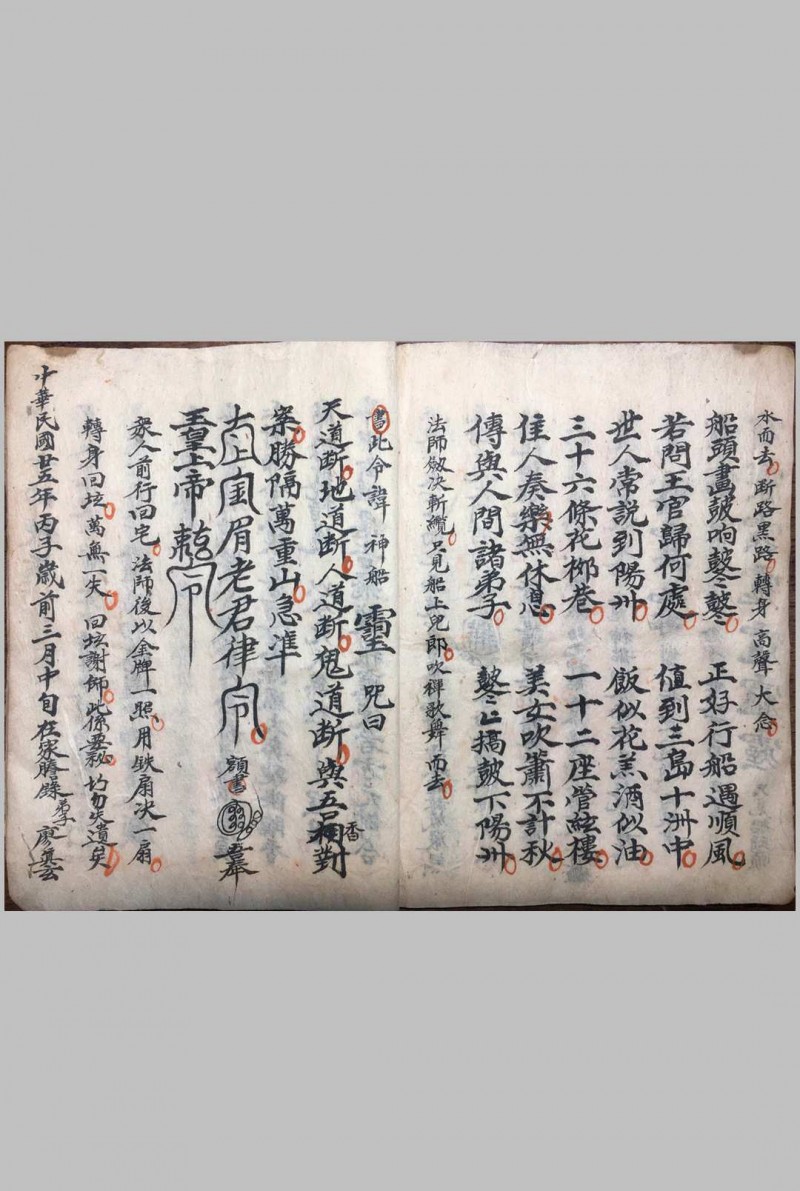 水而去 断路黑路 轉身 高聲 大念
船頭畫鼓响鼕〻鼕 正好行船遇順風
若問王官歸何處 值到三島十洲中
世人常説到陽州 飯似花羔酒似油
三十六條花柳巷 一十二座管絃樓
佳人奏樂無休息 美女吹簫不計秋
傳與人間諸弟子 鼕〻搞鼓下陽州
法師敂决斬纜 只見船上兒郎 吹禪歌舞而去
書此令諱 神船 咒曰
天道断 地道断 人道断 鬼道断 與吾相對
案勝隔萬重山 急準
太上 眉老君律令 額書 吾奉
玉皇上帝 敕令
衆人前行回宅 法師後以金牌一照 用鉄扇决一扇
轉身回坛 萬無一失 回坛謝師 此係要秘 切勿失遺矣
中華民國廿五年丙子歲前三月中旬在家謄錄 弟子 廖